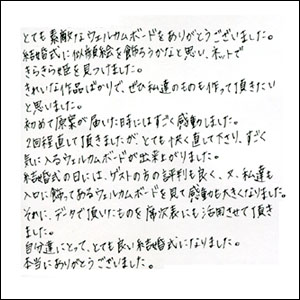 とても素敵なウェルカムボードをありがとうございました。
結婚式に似顔絵を飾ろうかなと思い、ネットで
きらきら姫を見つけました。
きれいな作品ばかりで、ぜひ私達のものも作って頂きたい
と思いました。
初めて原案が届いた時にはすごく感動しました。
2回程直して頂きましたが、とても快く直して下さり、すごく
気に入るウェルカムボードが出来上がりました。
結婚式の日には、ゲストの方の評判も良く、又、私達も
入口に飾ってあるウェルカムボードを見て感動も大きくなりました。
それに、データで頂いたものを席次表にも活用させて頂き
ました。
自分達にとって、とても良い結婚式になりました。
本当にありがとうございました。